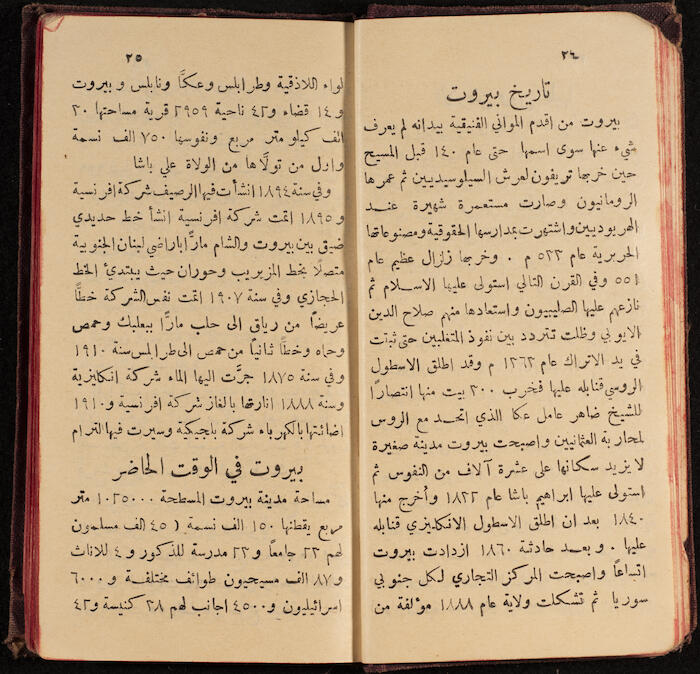 ٢٤
تاريخ بيروت
بيروت من اقدم المواني الفنيقية بيدانه لم يعرف
شيء عنها سوى اسمها حتى عام ١٤٠ قبل المسيح
حين خربها تريفون لعرش السيلوسيديين ثم عمرها
الرومانيون وصارت مستعمرة شهيرة عند
الهربوديين واشتهرت بمدارسها الحقوقية ومصنوعاتها
الحريرية عام ٥٢٣ م . وخربها زلزال عظيم عام
٥٥١ وفي القرن التالي استولى عليها الاسلام ثم
نازعهم عليها الصليبيون واستعادها منهم صلاح الدين
الايوبي وظلت تتردد بين نفوذ المتغلبين حتى ثبتت
في يد الاتراك عام ١٢٦٣ م وقد اطلق الاسطول
الروسي قنابله عليها فخرب ٣٠٠ بيت منها انتصارًا
للشيخ ضاهر عامل عكا الذي اتحد مع الروس
لمحاربة العثمانيين واصبحت بيروت مدينة صغيرة
لا يزيد سكانها على عشرة آلاف من النفوس ثم
استولى عليها ابراهيم باشا عام ١٨٢٢ وأخرج منها
١٨٤٠ بعد ان اطلق الاسطول الانكليزي قنابله
عليها . وبعد حادثة ١٨٦٠ ازدادت بيروت
اتساعًا واصبحت المركز التجاري لكل جنوبي
سوريا ثم تشكلت ولاية عام ١٨٨٨ مؤلفة من
٢٥
لواء اللاذقية وطرابلس وعكّا ونابلس وبيروت
و١٤ قضاء و٤٢ ناحية ٢٩٥٩ قرية مساحتها ٣٠
الف كيلو متر مربع ونفوسها ٧٥٠ الف نسمة
واول من تولاها من الولاة علي باشا
وفي سنة ١٨٩٤ انشأت فيها الرصيف شركة افرنسية
و ١٨٩٥ اتمت شركة افرنسية انشأ خط حديدي
ضيق بين بيروت والشام مارًّا باراضي لبنان الجنوبية
متصلًا بخط المزيريب وحوران حيث يبتدئ الخط
الحجازي وفي سنة ١٩٠٧ اتمت نفس الشركة خطًّا
عريضًا من رياق الى حلب مارًّا ببعلبك وحمص
وحماه وخطًّا ثانيًا من حمص الى طرابلس سنة ١٩١٠
وفي سنة ١٨٧٥ جرَّت اليها الماء شركة انكليزية
وسنة ١٨٨٨ انارتها بالغاز شركة افرنسية و١٩١٠
اضائتها بالكهرباء شركة بلجيكية وسيرت فيها الترام
بيروت في الوقت الحاضر
مساحة مدينة بيروت المسطحة ١٠٢٥٠٠٠ متر
مربع يقطنها ١٥٠ الف نسمة ( ٤٥ الف مسلمون
لهم ٢٣ جامعًا و٢٣ مدرسة للذكور و ٤ للاناث
و٨٧ الف مسيحيون طوائف مختلفة و٦٠٠٠
اسرائيليون و٤٥٠٠ اجانب لهم ٣٨ كنيسة و٤٢